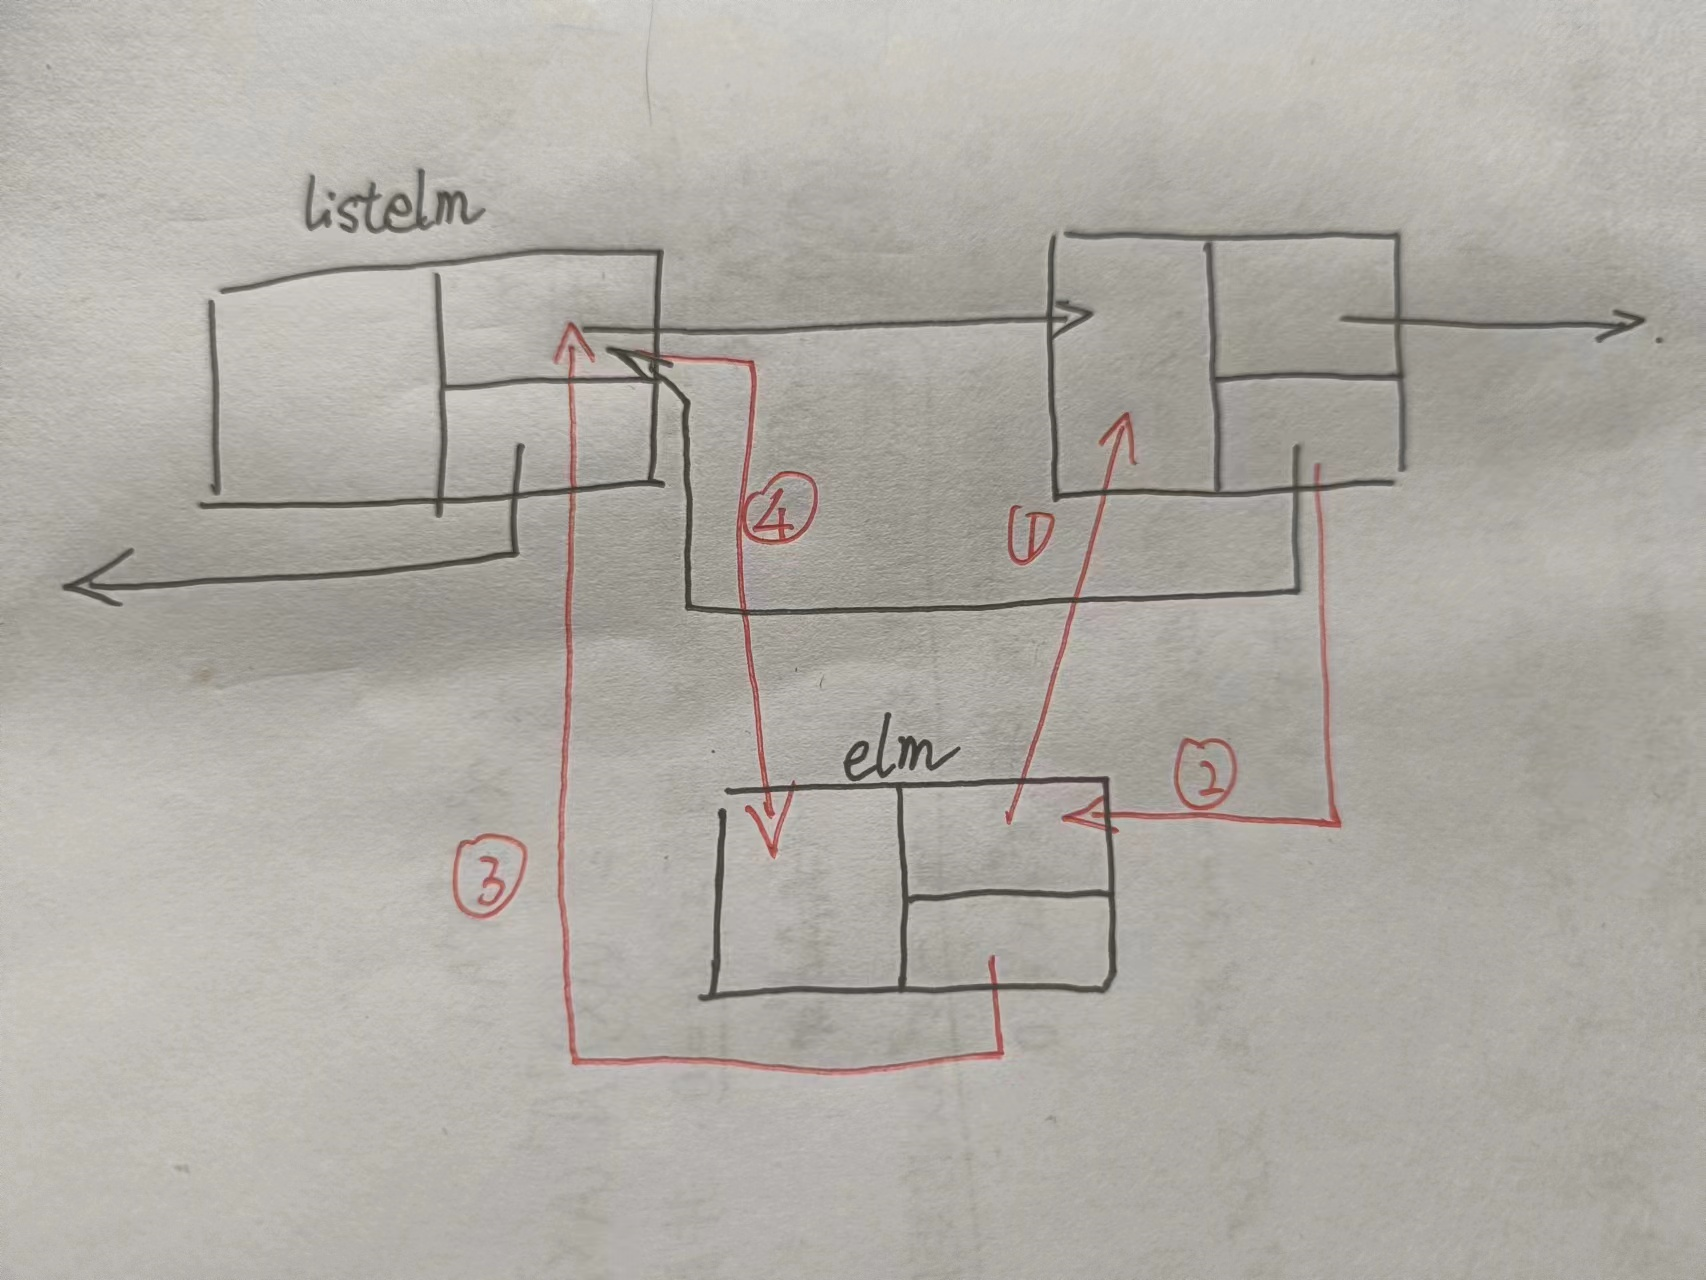 listelm
④
①
elm
②
③